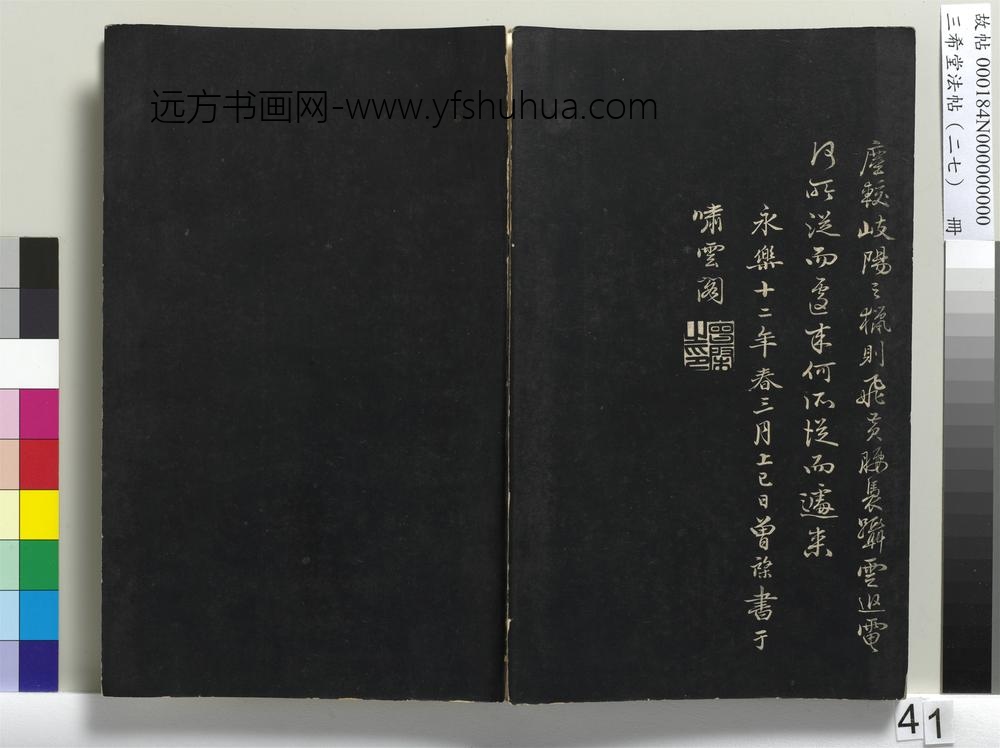 远方书画网-www.yfshuhua.com
塵較岐陽之獵則飛黃騕褭躡雲追電
何所從而遽來何所從而遽來
永樂十二年春三月上巳日曾棨書于
嘯雲閣
故帖 000184N000000000
三希堂法帖（二七） 冊
41